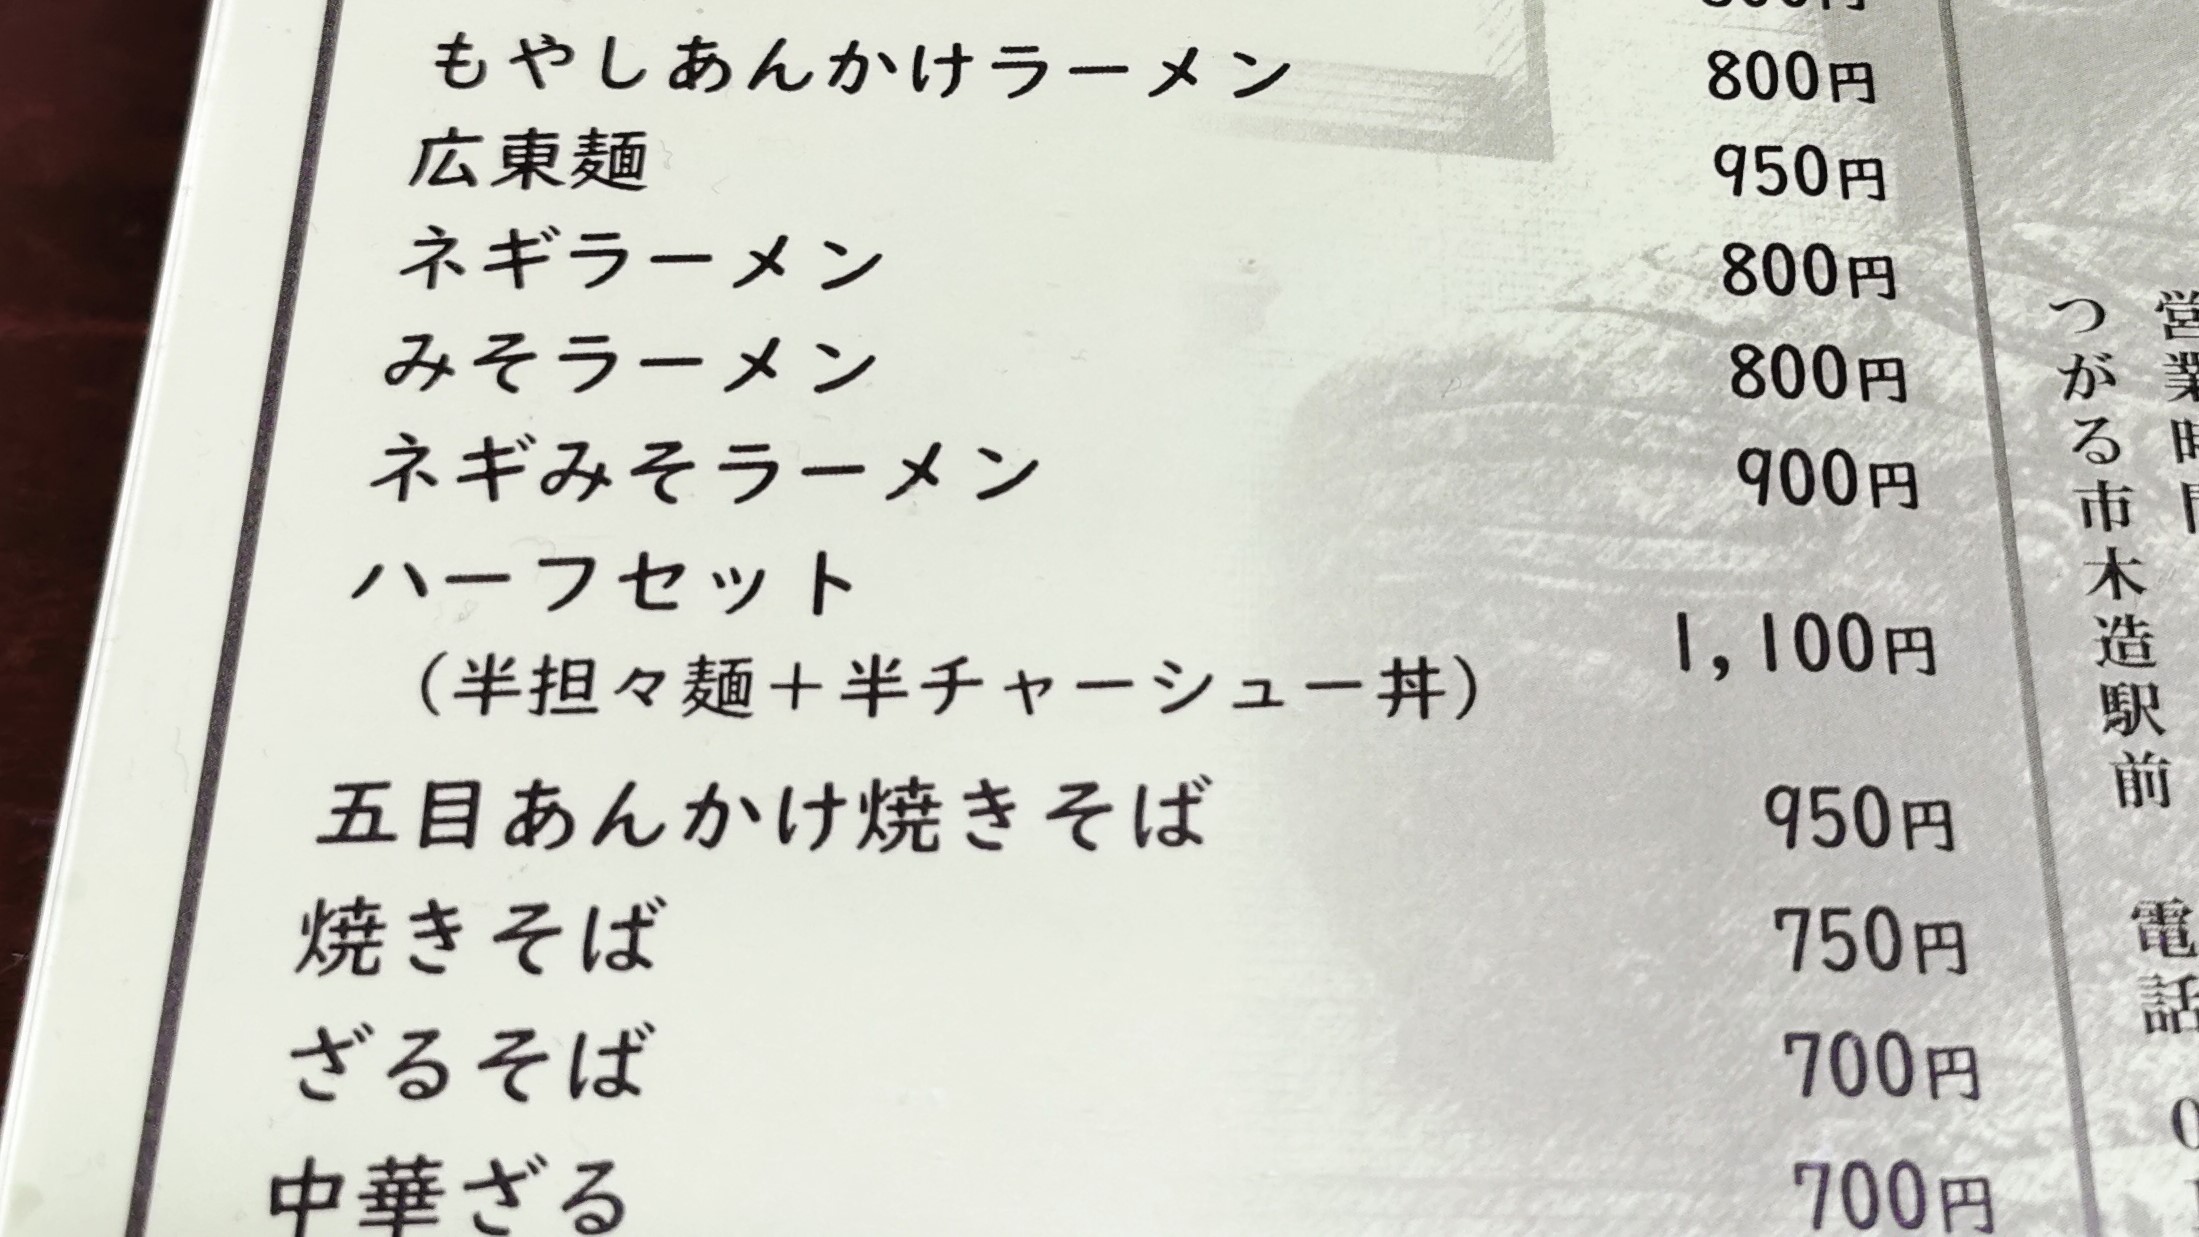 もやしあんかけラーメン 800円
広東麺 950円
ネギラーメン 800円
みそラーメン 800円
ネギみそラーメン 900円
ハーフセット
(半担々麺+半チャーシュー丼) 1,100円
五目あんかけ焼きそば 950円
焼きそば 750円
ざるそば 700円
中華ざる 700円
営業時間
つがる市木造駅前
電話